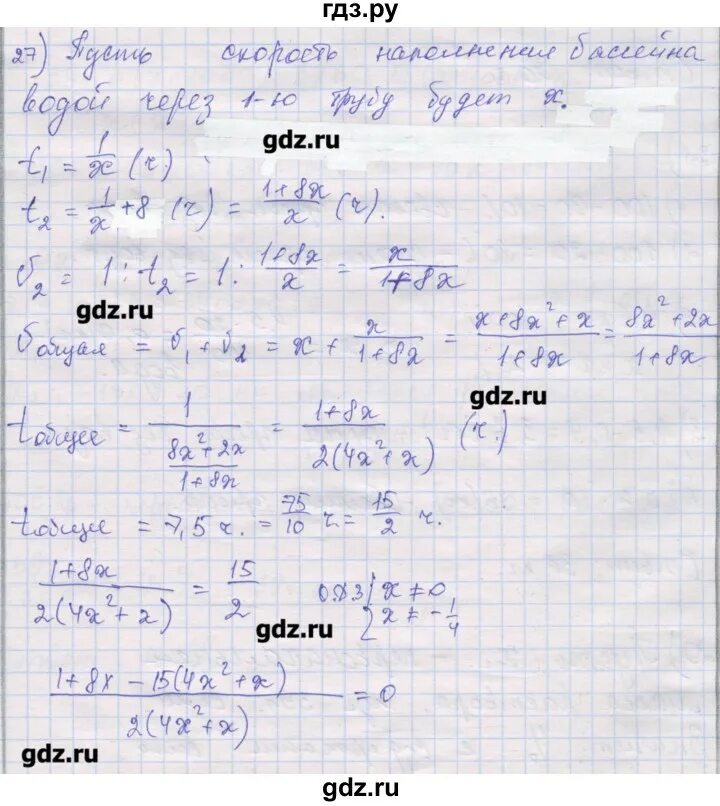 гдз.ру
27) Пусть скорость наполнения бассейна
водой через 1-ю трубу будет x.
gdz.ru
t₁ = 1/x (ч.)
t₂ = 1/x + 8 (ч) = (1+8x)/x (ч).
v₂ = 1 : t₂ = 1 : (1+8x)/x = x/(1+8x)
gdz.ru
v общая = v₁ + v₂ = x + x/(1+8x) = (x+8x²+x)/(1+8x) = (8x²+2x)/(1+8x)
gdz.ru
t общее = 1/((8x²+2x)/(1+8x)) = (1+8x)/(2(4x²+x)) (ч.)
t общее = 7,5 ч. = 75/10 ч. = 15/2 ч.
(1+8x)/(2(4x²+x)) = 15/2 ОДЗ { x ≠ 0
x ≠ -1/4
gdz.ru
(1+8x - 15(4x²+x))/(2(4x²+x)) = 0
gdz.ru
gdz.ru